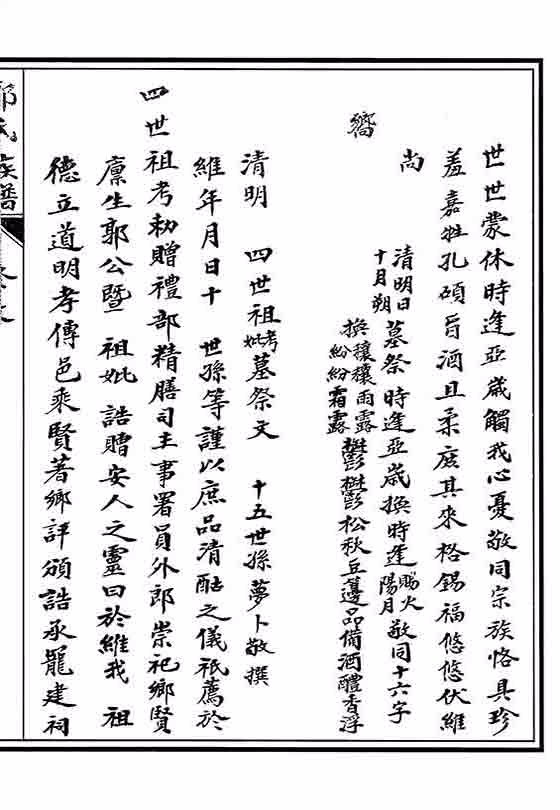 世世蒙休時逢亞歲觸我心憂敬同宗族恪具珍
羞嘉牲孔碩旨酒且柔庶其來格錫福悠悠伏維
尚
饗
清明日
十月朔
墓祭時逢亞歲換時逢
賜火
陽月
敬同十六字
換穰穰雨露鬱鬱松秋豆籩品備酒醴香浮
紛紛霜露
清明 四世祖考妣墓祭文 十五世孫夢卜敬撰
維年月日十 世孫等謹以庶品清酤之儀祇薦於
四世祖考勅贈禮部精膳司主事署員外郎崇祀鄉賢
廪生郭公暨 祖妣 誥贈安人之靈曰於維我 祖
德立道明孝傳邑乘賢著鄉評頒誥承寵建祠
郭氏族譜